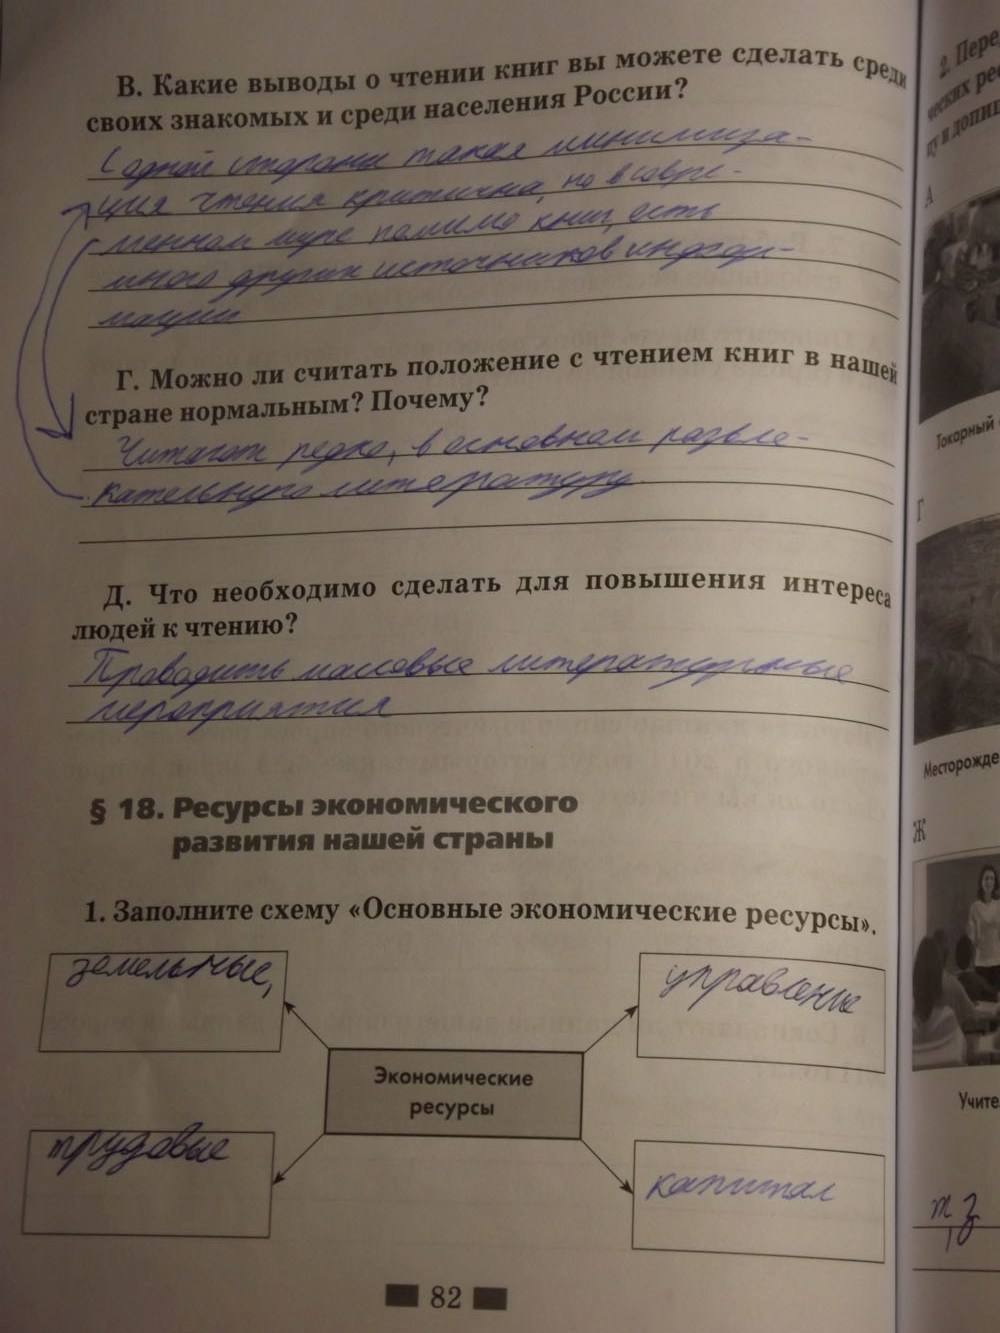 В. Какие выводы о чтении книг вы можете сделать среди
своих знакомых и среди населения России?
С одной стороны такая минимиза-
ция чтения критична, но в совре-
менном мире помимо книг, есть
много других источников инфор-
мации
Г. Можно ли считать положение с чтением книг в нашей
стране нормальным? Почему?
Читают редко, в основном развле-
кательную литературу
Д. Что необходимо сделать для повышения интереса
людей к чтению?
Проводить массовые литературные
мероприятия
§ 18. Ресурсы экономического
развития нашей страны
1. Заполните схему «Основные экономические ресурсы».
земельные,
управление
Экономические
ресурсы
трудовые
капитал
82
2. Пере
ческих рес
пу и допиш
А
Токарный
Г
Месторожде
Ж
Учите